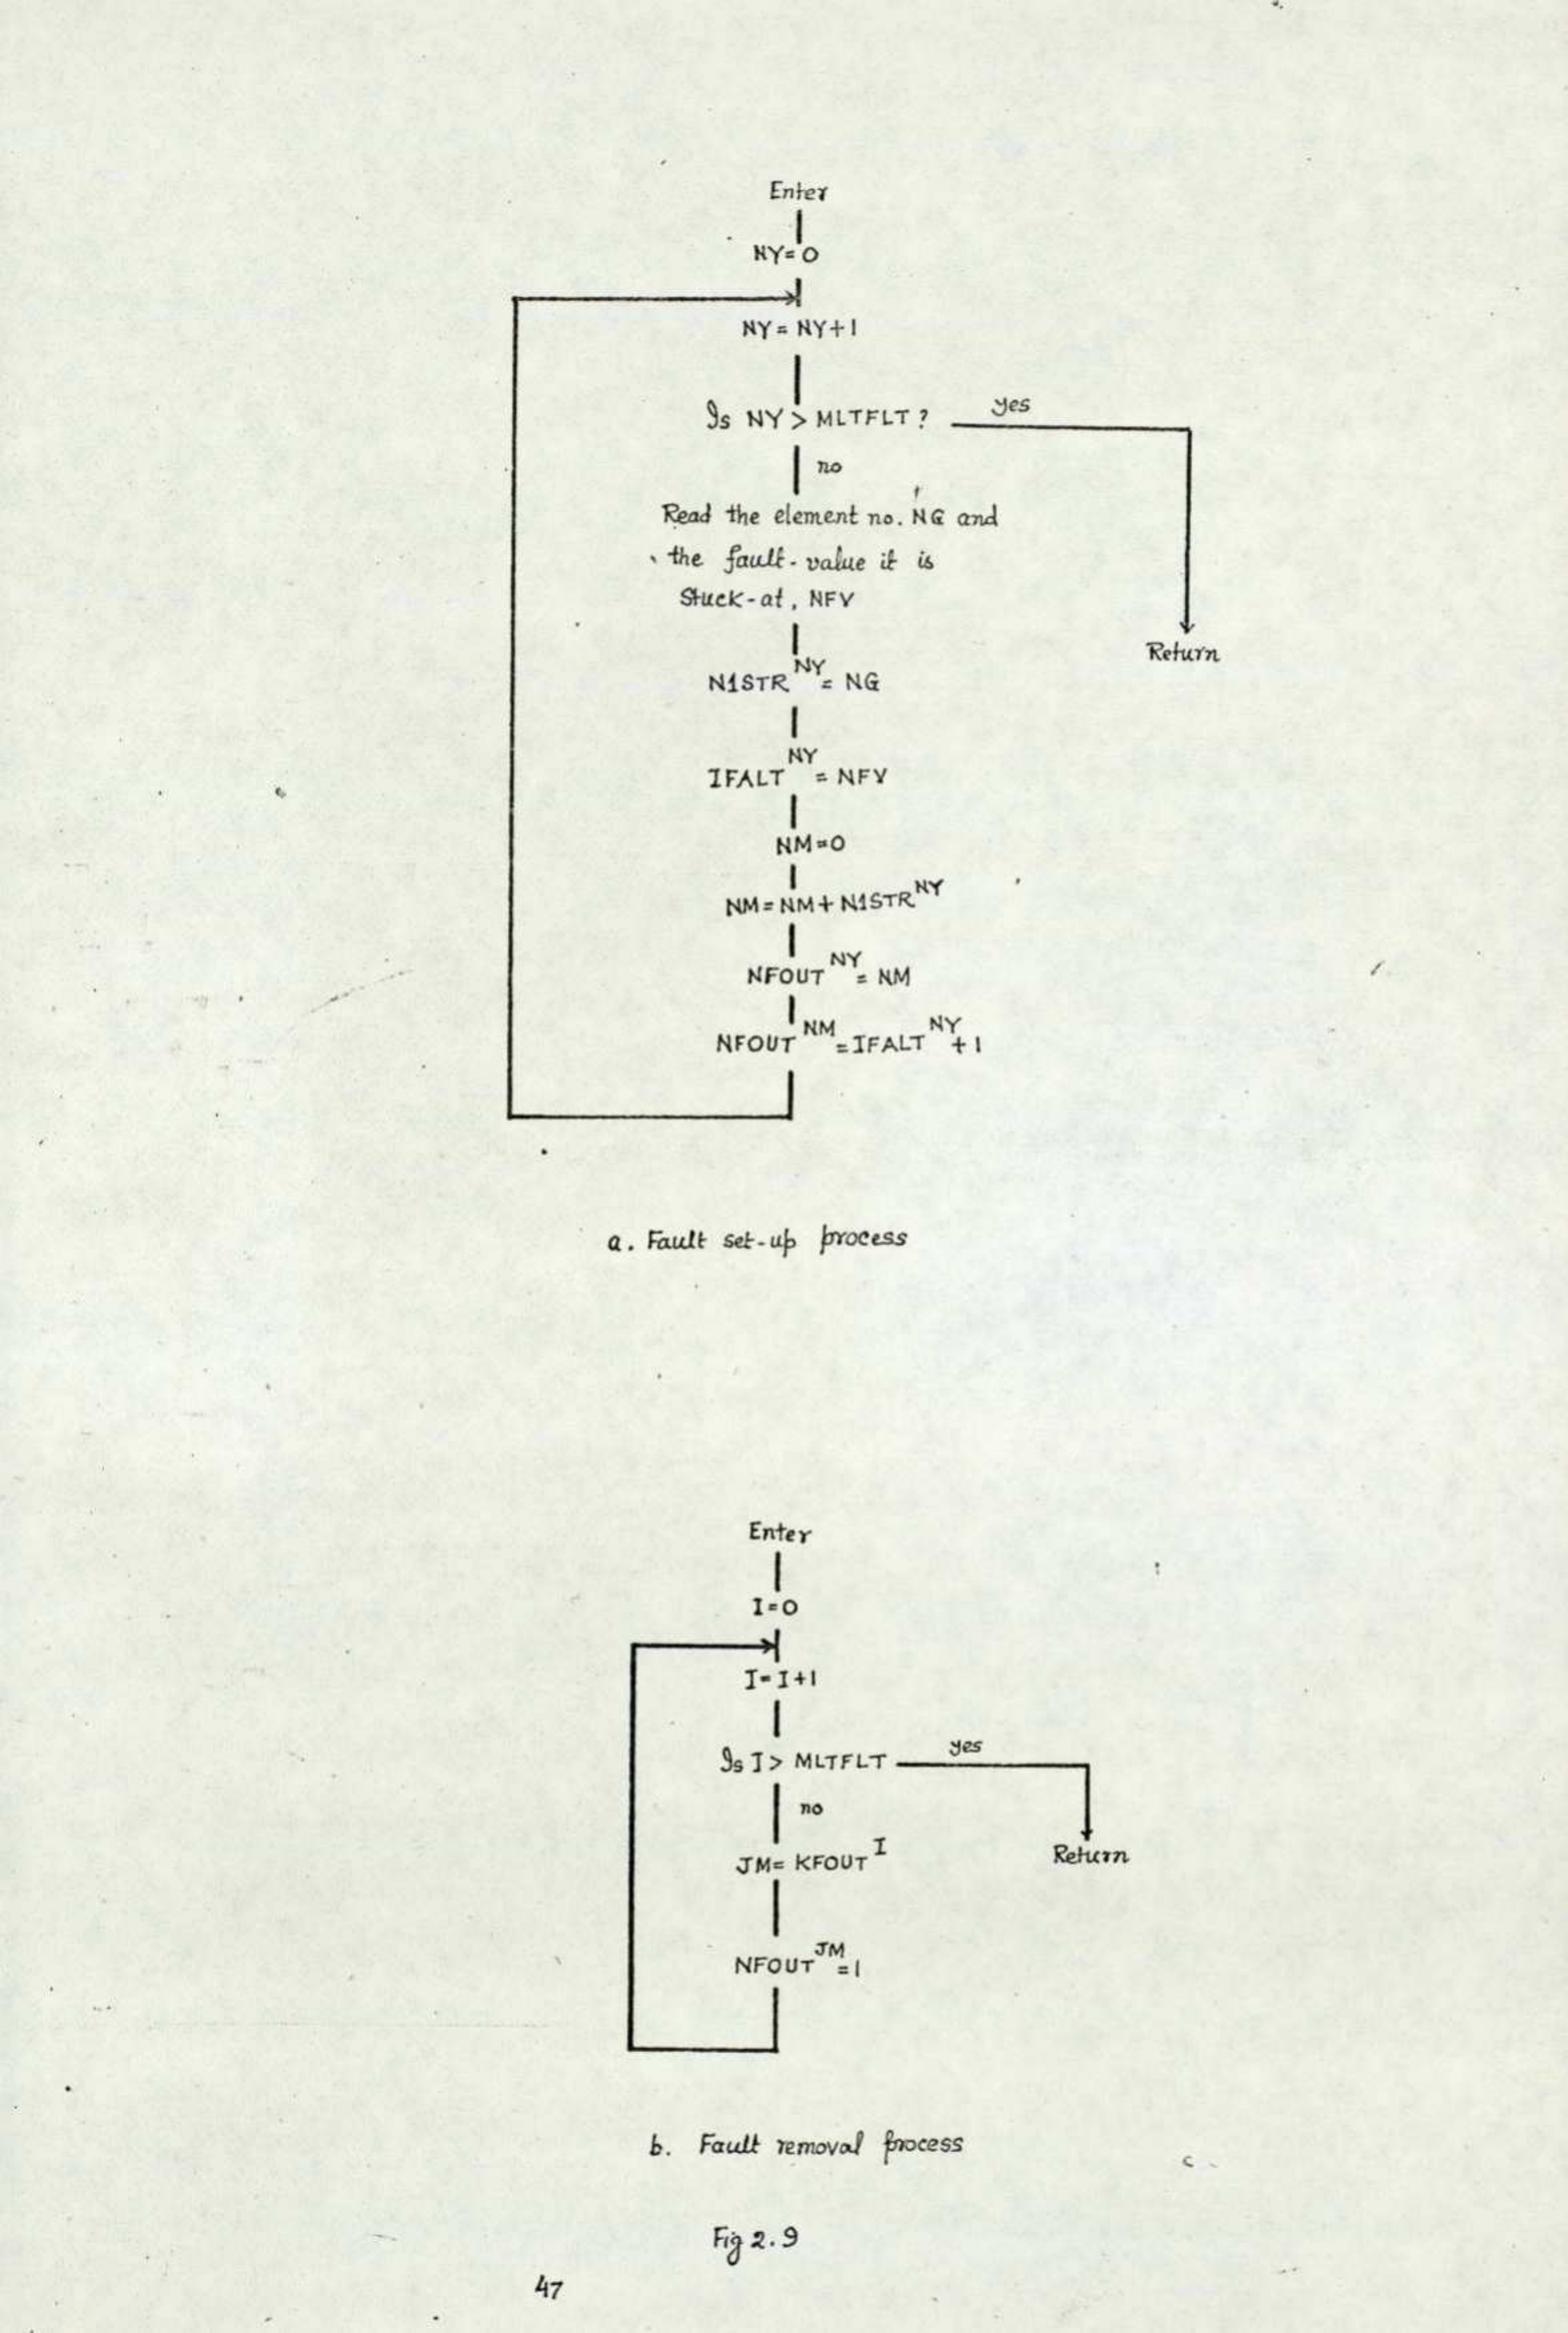 Enter
NY=0
NY=NY+1
Is NY > MLTFLT ? yes
no
Read the element no. NG and
the fault-value it is
Stuck-at, NFV
N1STR^NY = NG
IFALT^NY = NFV
NM=0
NM=NM+N1STR^NY
NFOUT^NY = NM
NFOUT^NM = IFALT^NY + 1
Return
a. Fault set-up process
Enter
I=0
I=I+1
Is I > MLTFLT yes
no
JM= KFOUT^I
NFOUT^JM =1
Return
b. Fault removal process
Fig 2.9
47